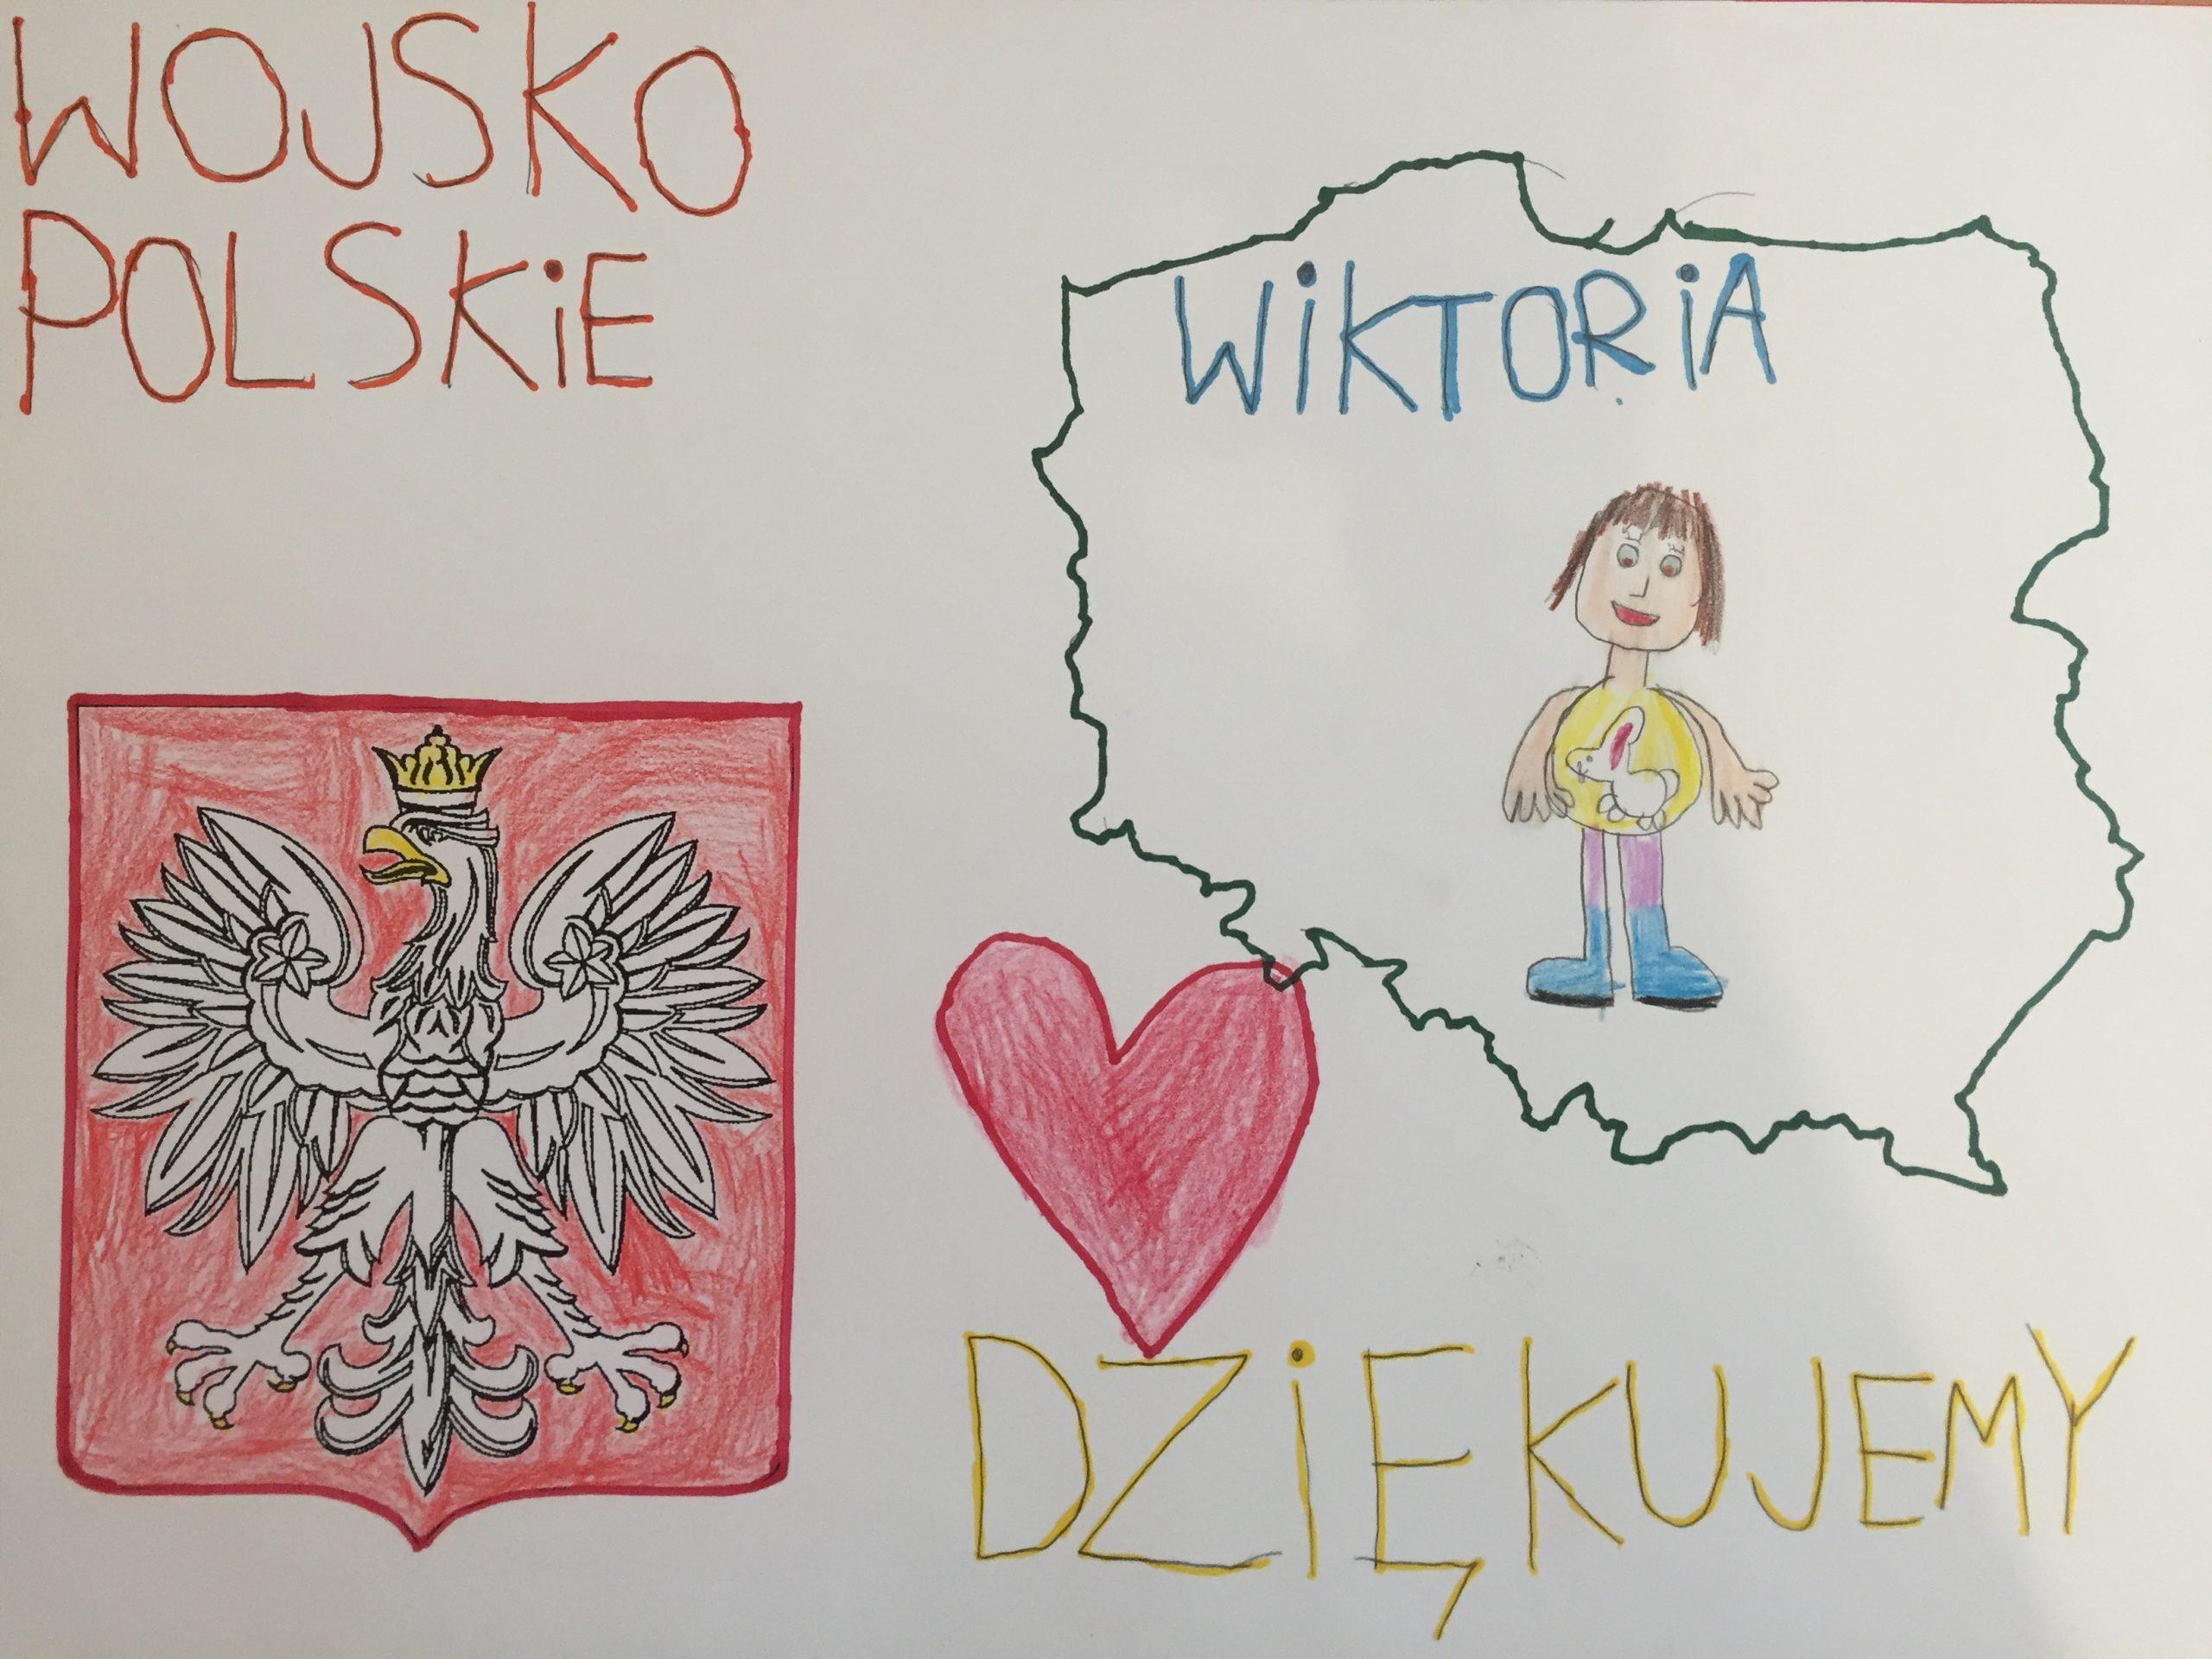 WOJSKO
POLSKiE
WiKTORiA
DZiĘKUJEMY